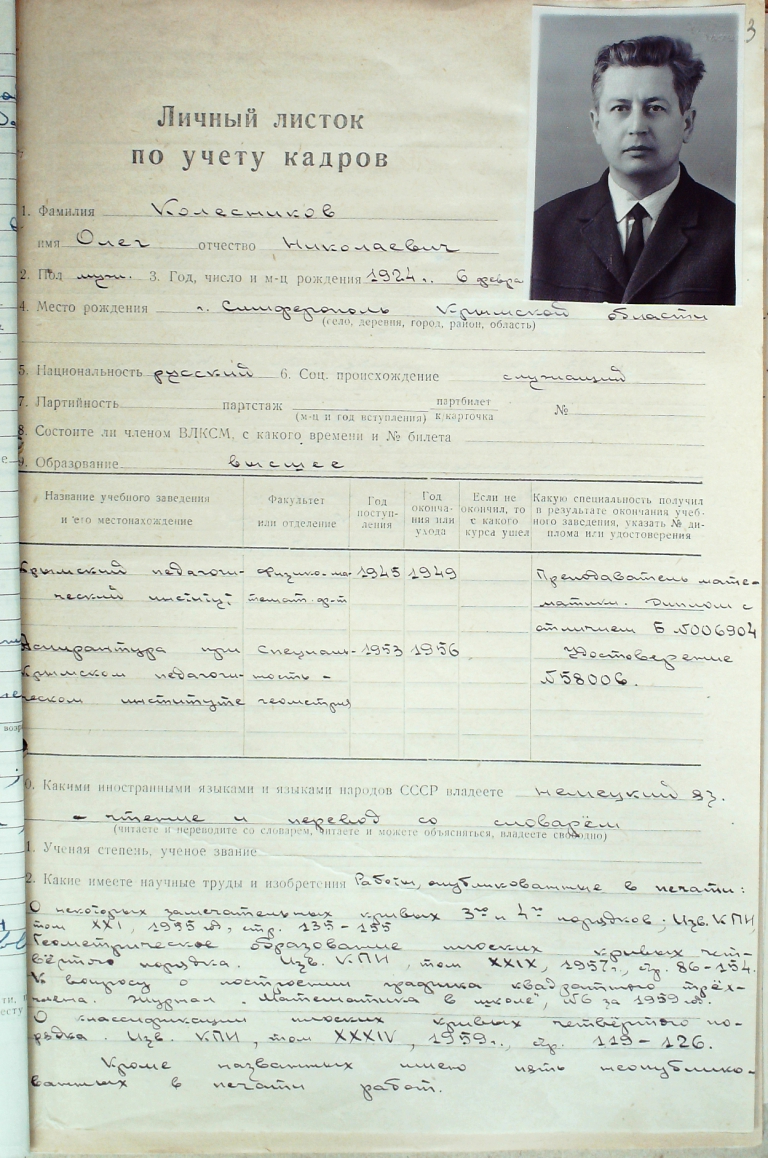 3
Личный листок
по учету кадров
1. Фамилия Колесников
имя Олег отчество Николаевич
2. Пол муж. 3. Год, число и м-ц рождения 1924 г. 6 февра
4. Место рождения г. Симферополь Крымской области
(село, деревня, город, район, область)
5. Национальность русский 6. Соц. происхождение служащий
7. Партийность партстаж партбилет №
(м-ц и год вступления) к/карточка
8. Состоите ли членом ВЛКСМ, с какого времени и № билета
9. Образование высшее
Название учебного заведения и его местонахождение
Факультет или отделение
Год поступ-ления
Год оконча-ния или ухода
Если не окончил, то с какого курса ушел
Какую специальность получил в результате окончания учеб-ного заведения, указать № ди-плома или удостоверения
Крымский педагоги- физико-ма- 1945 1949 Преподаватель мате-
ческий институт темат. ф-т матики. Диплом с
отличием Б №006904
Аспирантура при Специаль- 1953 1956 Удостоверение
Крымском педагоги- ность - №58006.
ческом институте геометрия
0. Какими иностранными языками и языками народов СССР владеете немецкий яз.
- чтение и перевод со словарём
(читаете и переводите со словарем, читаете и можете объясняться, владеете свободно)
1. Ученая степень, ученое звание
2. Какие имеете научные труды и изобретения Работы, опубликованные в печати:
О некоторых замечательных кривых 3го и 4го порядков; Изв. КПИ,
том XXI, 1955 г., стр. 135-155
Геометрическое образование плоских кривых чет-
вёртого порядка. Изв. КПИ, том XXIX, 1957 г., стр. 86-154.
К вопросу о построении графика квадратного трёх-
члена. Журнал „Математика в школе", №6 за 1959 г.
О классификации плоских кривых четвёртого по-
рядка. Изв. КПИ, том XXXIV, 1959 г., стр. 119-126.
Кроме названных имею пять неопублико-
ванных в печати работ.